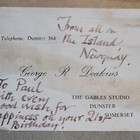 Telephone: Dunster 264
From all on
the Island,
Newquay
George R. Deakins
To Paul
THE GABLES STUDIO
DUNSTER
SOMERSET
with every
good wish, for
happiness on your 21st
Birthday.